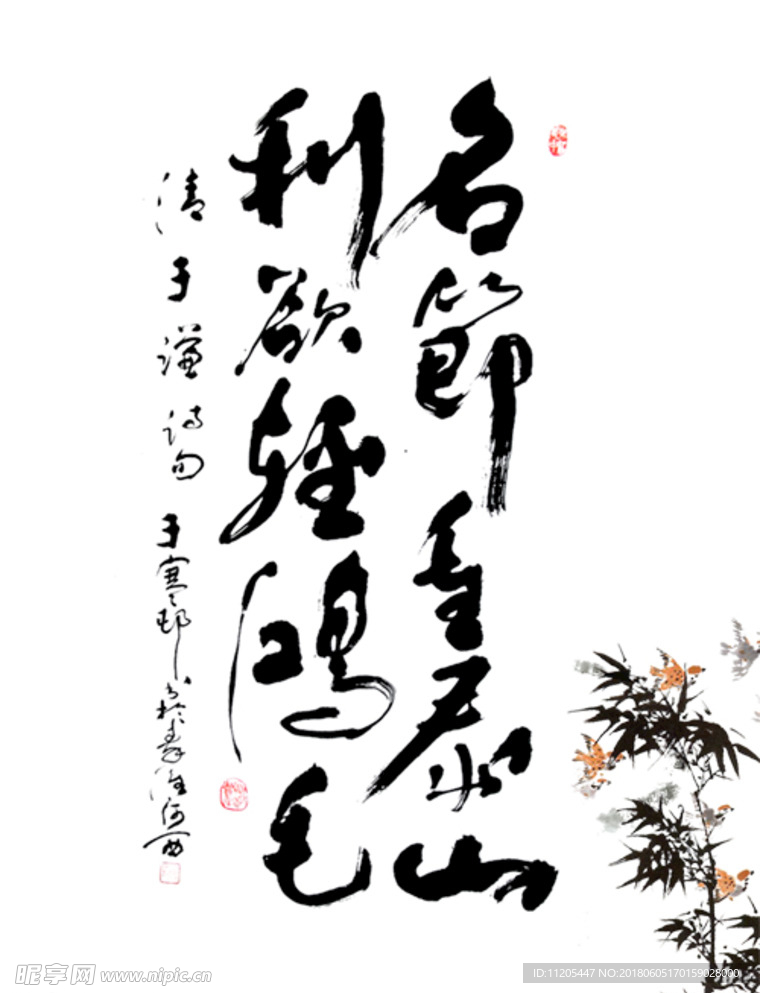 名節重泰山
利欲輕鴻毛
清于謙詩句 于寒邨
昵享网 www.nipic.cn
ID:11205447 NO:20180605170159028000